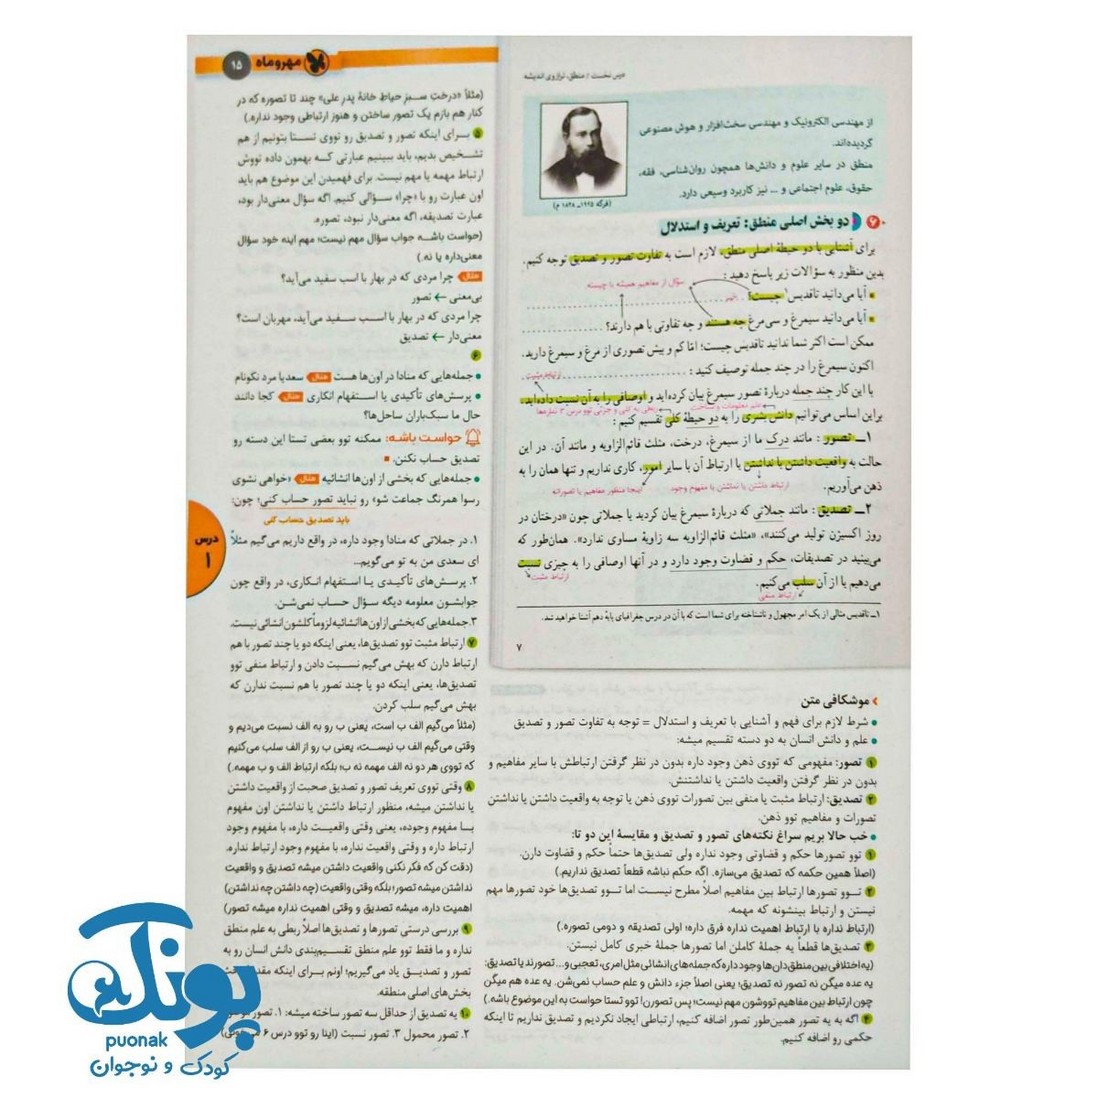 درس نخست / منطق، ترازوی اندیشه
از مهندسی الکترونیک و مهندسی سخت‌افزار و هوش مصنوعی
گردیده‌اند.
منطق در سایر علوم و دانش‌ها همچون روان‌شناسی، فقه،
حقوق، علوم اجتماعی و ... نیز کاربرد وسیعی دارد.
(فرگه ۱۹۲۵ـ ۱۸۴۸ م)
۶ دو بخش اصلی منطق: تعریف و استدلال
برای آشنایی با دو حیطهٔ اصلی منطق، لازم است به تفاوت تصور و تصدیق توجه کنیم.
بدین منظور به سؤالات زیر پاسخ دهید :
سؤال از مفاهیم همیشه با چیسته
آیا می‌دانید تاقدیس۱ چیست؟
آیا می‌دانید سیمرغ و سی‌مرغ چه هستند و چه تفاوتی با هم دارند؟
ممکن است اکثر شما ندانید تاقدیس چیست؛ امّا کم و بیش تصوری از مرغ و سیمرغ دارید.
اکنون سیمرغ را در چند جمله توصیف کنید :
ارتباط مثبت
با این کار چند جمله دربارهٔ تصور سیمرغ بیان کرده‌اید و اوصافی را به آن نسبت داده‌اید.
علم، معلومات و شناخت
ربطی به کلی و جزئی توو درس ۳ نداره‌ها
براین اساس می‌توانیم دانش بشری را به دو حیطهٔ کلی تقسیم کنیم :
۱ــ تصور : مانند درک ما از سیمرغ، درخت، مثلث قائم‌الزاویه و مانند آن. در این
حالت به واقعیت داشتن یا نداشتن یا ارتباط آن با سایر امور، کاری نداریم و تنها همان را به
ذهن می‌آوریم.
ارتباط داشتن یا نداشتن با مفهوم وجود
اینجا منظور مفاهیم یا تصوراته
۲ــ تصدیق : مانند جملاتی که دربارهٔ سیمرغ بیان کردید یا جملاتی چون «درختان در
روز اکسیژن تولید می‌کنند»، «مثلث قائم‌الزاویه سه زاویهٔ مساوی ندارد». همان‌طور که
می‌بینید در تصدیقات، حکم و قضاوت وجود دارد و در آنها اوصافی را به چیزی نسبت
می‌دهیم یا از آن سلب می‌کنیم.
ارتباط مثبت
ارتباط منفی
۱ــ تاقدیس مثالی از یک امر مجهول و ناشناخته برای شما است که با آن در درس جغرافیای پایهٔ دهم آشنا خواهید شد.
۷
موشکافی متن
شرط لازم برای فهم و آشنایی با تعریف و استدلال = توجه به تفاوت تصور و تصدیق
علم و دانش انسان به دو دسته تقسیم میشه:
۱ تصور: مفهومی که تووی ذهن وجود داره بدون در نظر گرفتن ارتباطش با سایر مفاهیم و
بدون در نظر گرفتن واقعیت داشتن یا نداشتنش.
۲ تصدیق: ارتباط مثبت یا منفی بین تصورات تووی ذهن یا توجه به واقعیت داشتن یا نداشتن
تصورات و مفاهیم توو ذهن.
خب حالا بریم سراغ نکته‌های تصور و تصدیق و مقایسهٔ این دو تا:
۱ توو تصورها حکم و قضاوتی وجود نداره ولی تصدیق‌ها حتماً حکم و قضاوت دارن.
(اصلاً همین حکمه که تصدیق می‌سازه. اگه حکم نباشه قطعاً تصدیق نداریم.)
۲ توو تصورها ارتباط بین مفاهیم اصلاً مطرح نیست اما توو تصدیق‌ها خود تصورها مهم
نیستن و ارتباط بینشونه که مهمه.
(ارتباط نداره با ارتباط اهمیت نداره فرق داره؛ اولی تصدیقه و دومی تصوره.)
۳ تصدیق‌ها قطعاً یه جملهٔ کاملن اما تصورها جملهٔ خبری کامل نیستن.
(یه اختلافی بین منطق‌دان‌ها وجود داره که جمله‌های انشائی مثل امری، تعجبی و... تصورند یا تصدیق:
یه عده میگن نه تصورن نه تصدیق؛ یعنی اصلاً جزء دانش و علم حساب نمی‌شن. یه عده هم میگن
چون ارتباط بین مفاهیم تووشون مهم نیست؛ پس تصورن! توو تستا حواست به این موضوع باشه.)
۴ اگه به یه تصور همین‌طور تصور اضافه کنیم، ارتباطی ایجاد نکردیم و تصدیق نداریم تا اینکه
حکمی رو اضافه کنیم.
مهروماه ۱۵
(مثلاً «درختِ سبزِ حیاطِ خانهٔ پدرِ علی» چند تا تصوره که در
کنار هم بازم یک تصور ساختن و هنوز ارتباطی وجود نداره.)
۵ برای اینکه تصور و تصدیق رو تووی تستا بتونیم از هم
تشخیص بدیم، باید ببینیم عبارتی که بهمون داده تووش
ارتباط مهمه یا مهم نیست. برای فهمیدن این موضوع هم باید
اون عبارت رو با «چرا» سؤالی کنیم. اگه سؤال معنی‌دار بود،
عبارت تصدیقه، اگه معنی‌دار نبود، تصوره.
(حواست باشه جواب سؤال مهم نیست؛ مهم اینه خود سؤال
معنی‌داره یا نه.)
مثال چرا مردی که در بهار با اسب سفید می‌آید؟
بی‌معنی ← تصور
چرا مردی که در بهار با اسب سفید می‌آید، مهربان است؟
معنی‌دار ← تصدیق
۶
جمله‌هایی که منادا در اون‌ها هست مثال سعدیا مرد نکونام
پرسش‌های تأکیدی یا استفهام انکاری مثال کجا دانند
حال ما سبک‌باران ساحل‌ها؟
حواست باشه: ممکنه توو بعضی تستا این دسته رو
تصدیق حساب نکنن.
جمله‌هایی که بخشی از اون‌ها انشائیه مثال «خواهی نشوی
رسوا همرنگ جماعت شو» رو نباید تصور حساب کنی؛ چون:
باید تصدیق حساب کنی
۱. در جملاتی که منادا وجود داره، در واقع داریم می‌گیم مثلاً
ای سعدی من به تو می‌گویم...
۲. پرسش‌های تأکیدی یا استفهام انکاری، در واقع چون
جوابشون معلومه دیگه سؤال حساب نمی‌شن.
۳. جمله‌هایی که بخشی از اون‌ها انشائیه لزوماً کلشون انشائی نیست.
۷ ارتباط مثبت توو تصدیق‌ها، یعنی اینکه دو یا چند تصور با هم
ارتباط دارن که بهش می‌گیم نسبت دادن و ارتباط منفی توو
تصدیق‌ها، یعنی اینکه دو یا چند تصور با هم نسبت ندارن که
بهش می‌گیم سلب کردن.
(مثلاً می‌گیم الف ب است، یعنی ب رو به الف نسبت می‌دیم و
وقتی می‌گیم الف ب نیست، یعنی ب رو از الف سلب می‌کنیم
که تووی هر دو نه الف مهمه نه ب؛ بلکه ارتباط الف و ب مهمه.)
۸ وقتی تووی تعریف تصور و تصدیق صحبت از واقعیت داشتن
یا نداشتن میشه، منظور ارتباط داشتن یا نداشتن اون مفهوم
با مفهوم وجوده، یعنی وقتی واقعیت داره، با مفهوم وجود
ارتباط داره و وقتی واقعیت نداره، با مفهوم وجود ارتباط نداره.
(دقت کن که فکر نکنی واقعیت داشتن میشه تصدیق و واقعیت
نداشتن میشه تصور؛ بلکه وقتی واقعیت (چه داشتن چه نداشتن)
اهمیت داره، میشه تصدیق و وقتی اهمیت نداره میشه تصور)
۹ بررسی درستی تصورها و تصدیق‌ها اصلاً ربطی به علم منطق
نداره و ما فقط توو علم منطق تقسیم‌بندی دانش انسان رو به
تصور و تصدیق یاد می‌گیریم؛ اونم برای اینکه
بخش‌های اصلی منطقه.
۱۰ یه تصدیق از حداقل سه تصور ساخته میشه: ۱. تصور
۲. تصور محمول ۳. تصور نسبت (اینا رو توو درس ۶
درس
۱
پونک
puonak
کودک و نوجوان